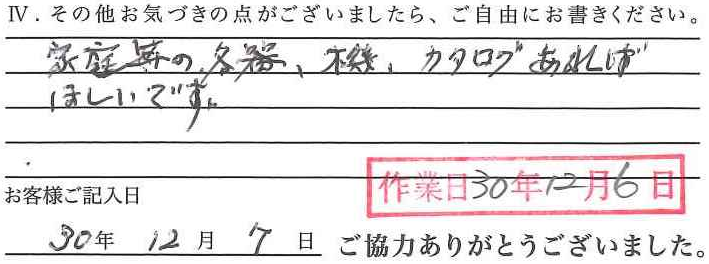 Ⅳ．その他お気づきの点がございましたら、ご自由にお書きください。
家庭等の各器、機、カタログあれば
ほしいです。
作業日30年12月6日
お客様ご記入日
30年 12月 7日 ご協力ありがとうございました。